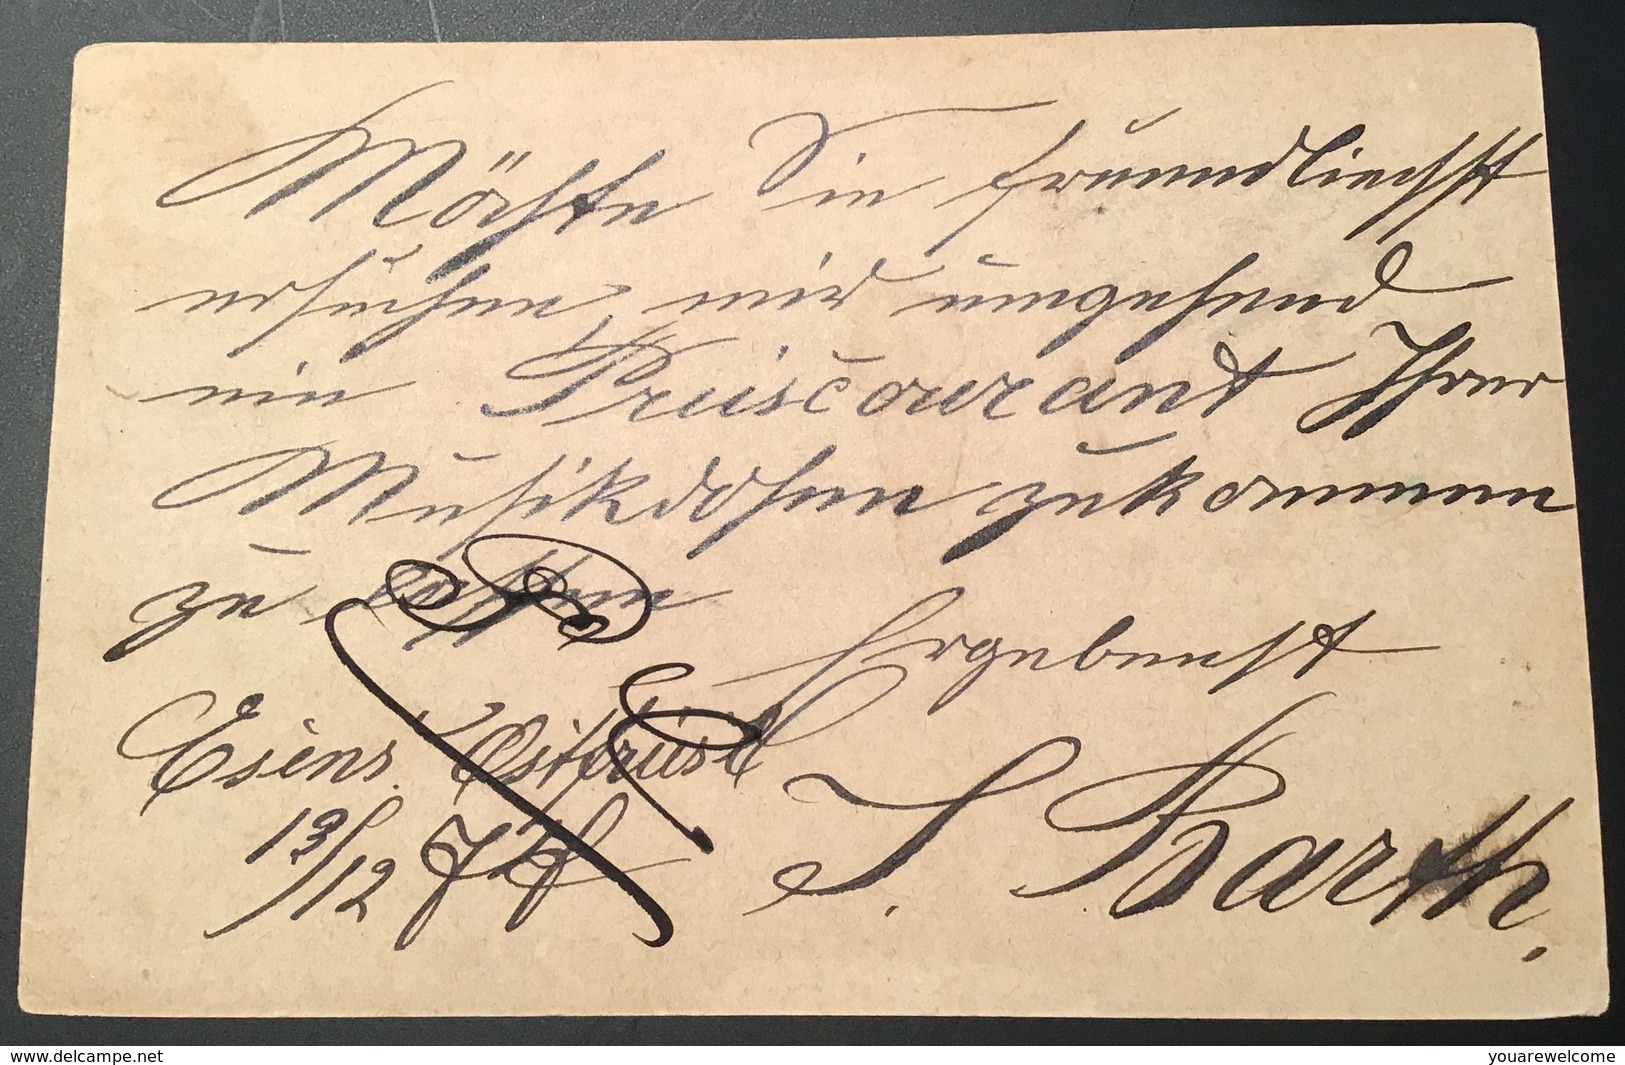 Möchte Sie freundlichst
ersuchen mir umgehend
ein Preiscourant Ihrer
Musikdosen zukommen
zu lassen
Ergebenst
Esens Ostfriesl
S. Barth.
13/12
www.delcampe.net
youarewelcome